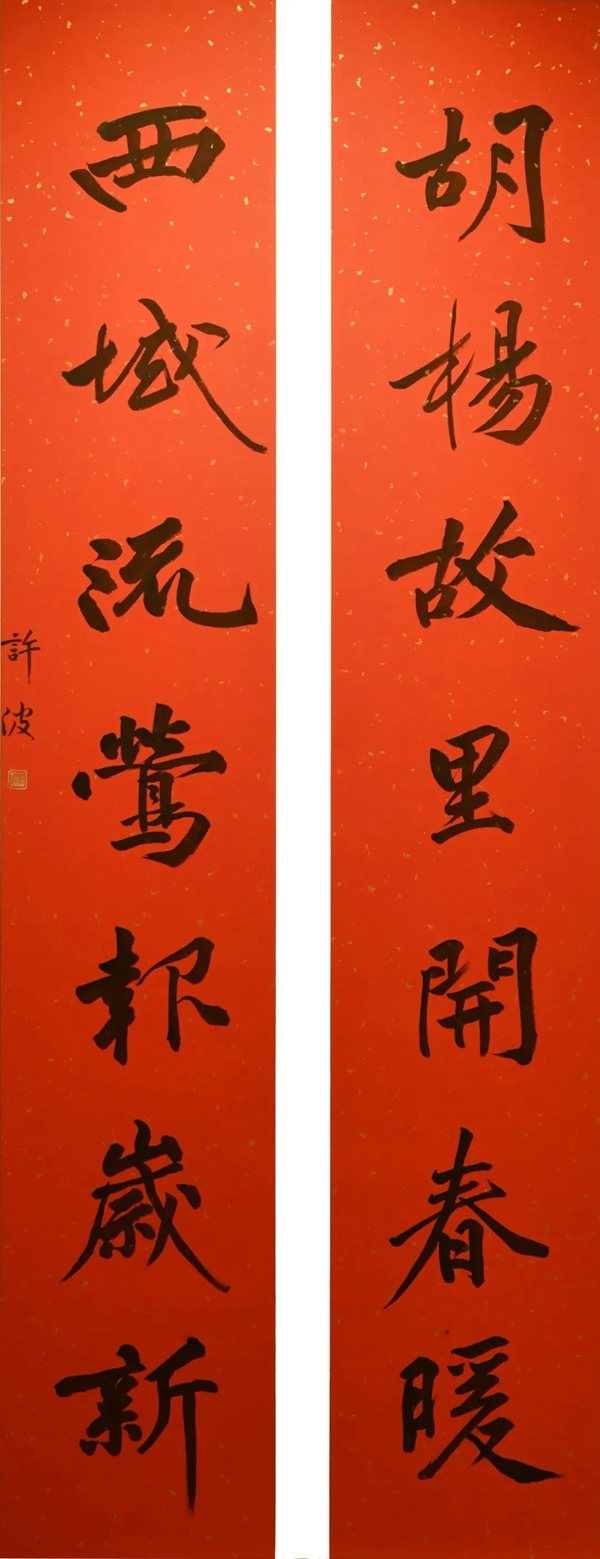 胡楊故里開春暖
西域流鶯報歲新
許波